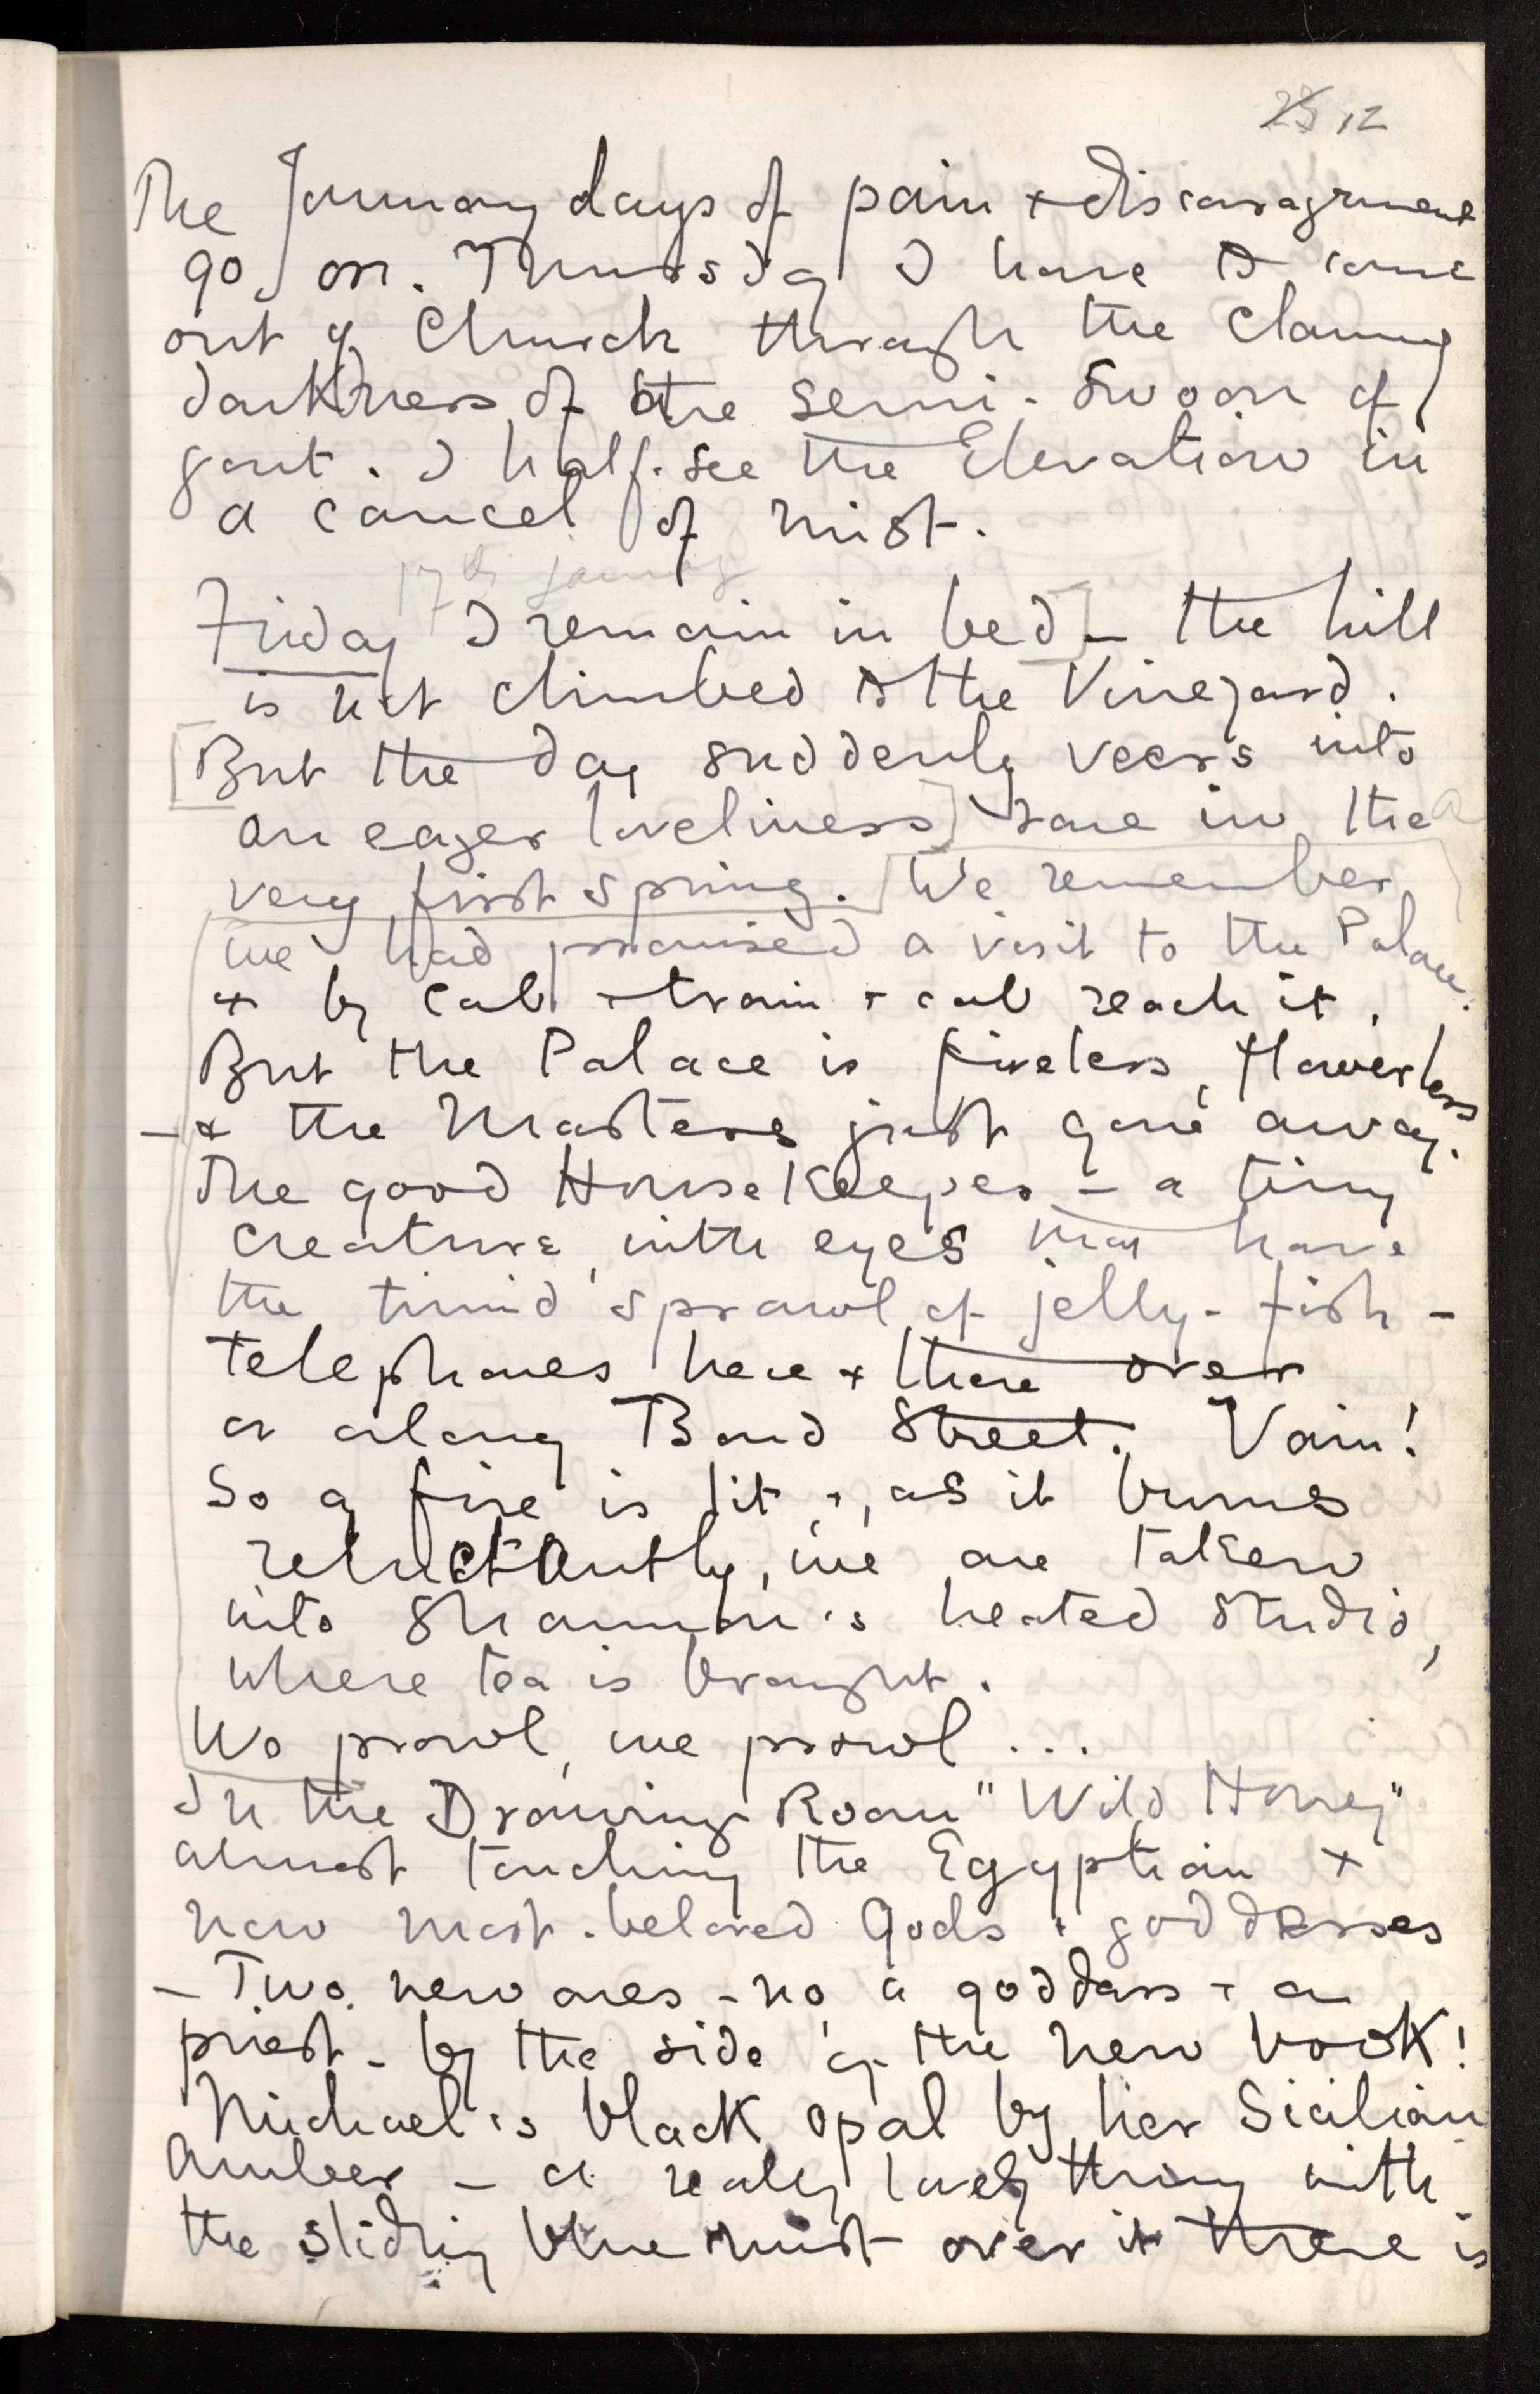 23 12
The January days of pain + discouragement
go on. Thursday I have to come
out of Church through the clammy
darkness of the semi-swoon of
gout. I half-see the Elevation in
a cancel of mist.
17th January
Friday I remain in bed – the hill
is not climbed to the Vineyard.
[But the day suddenly veers into
an eager loveliness] rare in the
very first spring. [We remember
we had promised a visit to the Palace:
+ by cab + train + cab reach it.
But the Palace is fireless, flowerless
– + the Masters just gone away.
The good HouseKeeper – a tiny
creature, with eyes that have
the timid sprawl of jelly-fish –
telephones here + there over
or along Bond Street. Vain!
So a fire is lit +, as it burns
reluctantly, we are taken
into Shannon's heated studio,
where tea is brought.
We prowl, we prowl ...
In the Drawing Room "Wild Honey"
almost touching the Egyptian +
new most-beloved Gods + goddesses
– Two new ones – no, a goddess + a
priest – by the side of the new book!
Michael's black opal by her Sicilian
Amber – a really lovely thing with
the sliding blue mist over it there is